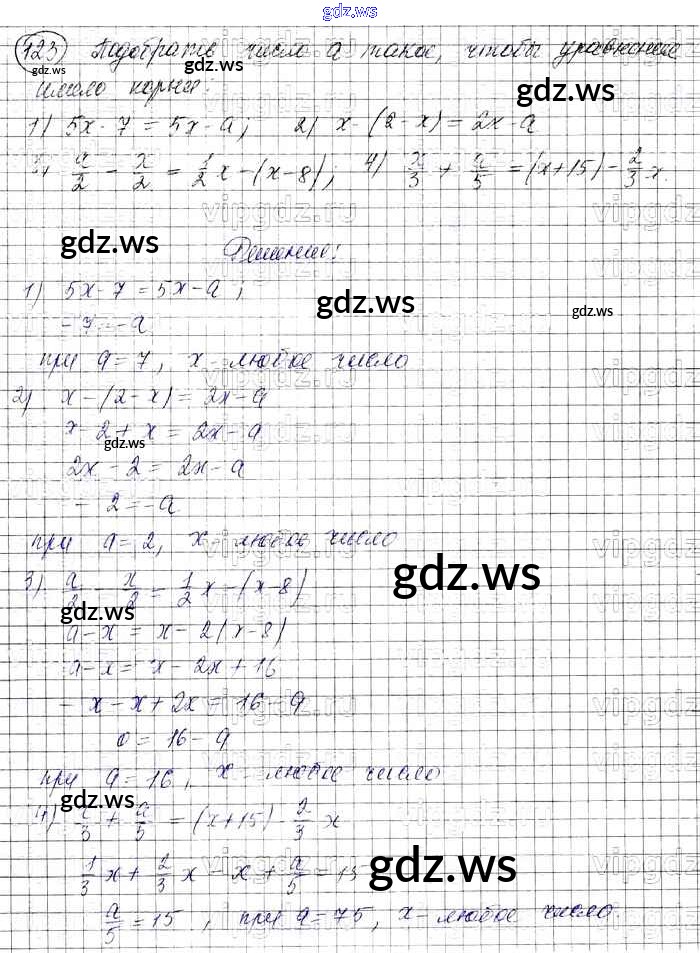 gdz.ws
123) Подобрать число a такое, чтобы уравнение
имело корень:
1) 5x - 7 = 5x - a; 2) x - (2 - x) = 2x - a
3) a/2 - x/2 = 1/2 x - (x - 8); 4) x/3 + a/5 = (x + 15) - 2/3 x.
Решение:
1) 5x - 7 = 5x - a;
- 7 = -a
при a = 7, x - любое число
2) x - (2 - x) = 2x - a
x - 2 + x = 2x - a
2x - 2 = 2x - a
- 2 = -a
при a = 2, x - любое число
3) a/2 - x/2 = 1/2 x - (x - 8)
a - x = x - 2(x - 8)
a - x = x - 2x + 16
- x - x + 2x = 16 - a
0 = 16 - a
при a = 16, x - любое число
4) x/3 + a/5 = (x + 15) - 2/3 x
1/3 x + 2/3 x - x + a/5 = 15
a/5 = 15, при a = 75, x - любое число.
gdz.ws
gdz.ws
gdz.ws
gdz.ws
gdz.ws
gdz.ws
gdz.ws
gdz.ws
gdz.ws
gdz.ws
gdz.ws
vipgdz.ru